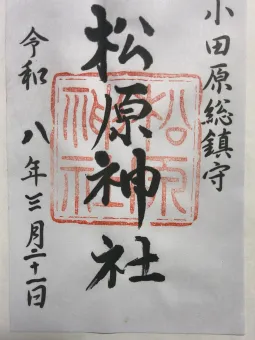 小田原総鎮守
松原神社
令和八年三月二十一日
松原
神社